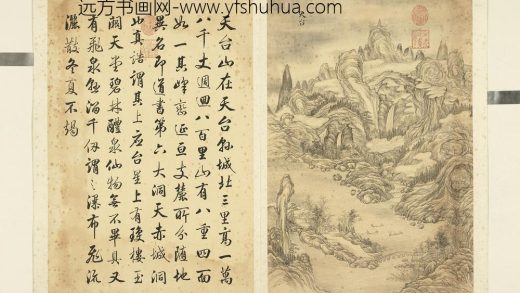 远方书画网-www.yfshuhua.com
天台山在天台县城北三里高一萬
八千丈週回八百里山有八重四面
如一其峰巒延亘支麓所分随地
異名即道書第六大洞天赤城洞
也真誥謂其上應台星上有瓊樓玉
洞天堂碧林醴泉仙物無不畢具又
有飛泉懸溜千仞謂之瀑布飛流
灑散冬夏不竭
天台